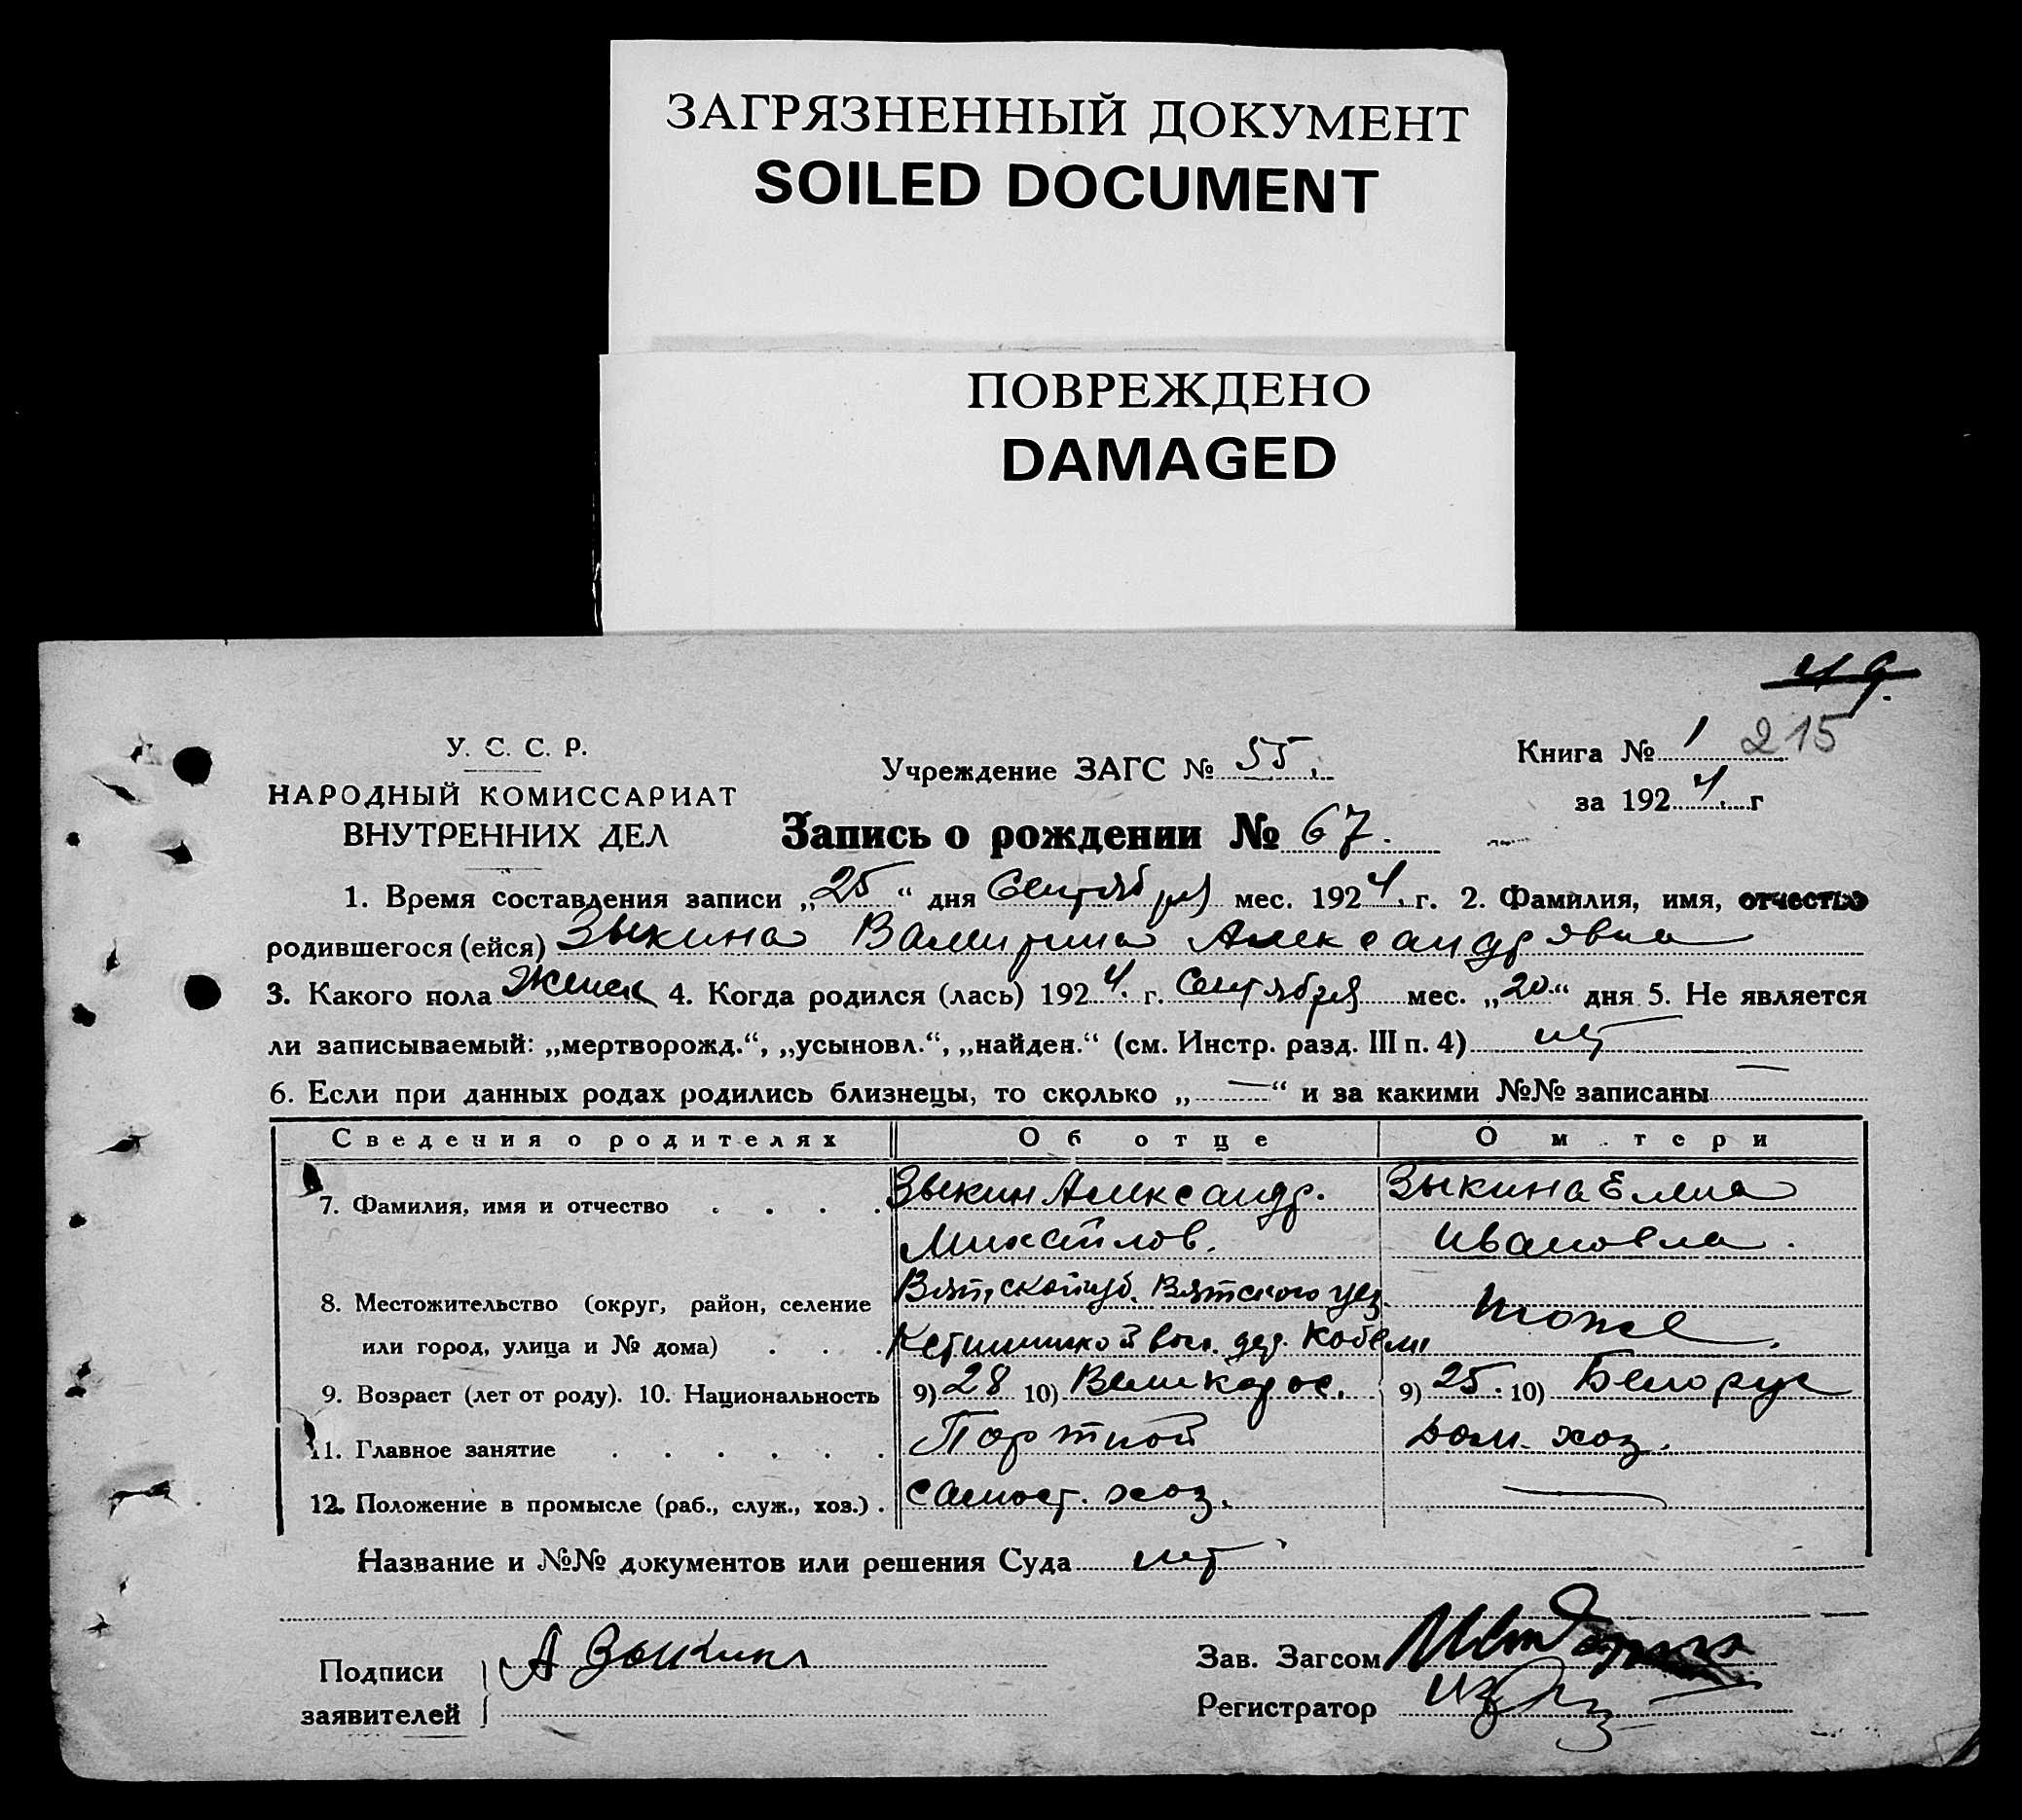 ЗАГРЯЗНЕННЫЙ ДОКУМЕНТ
SOILED DOCUMENT
ПОВРЕЖДЕНО
DAMAGED
У. С. С. Р.
НАРОДНЫЙ КОМИССАРИАТ
ВНУТРЕННИХ ДЕЛ
Учреждение ЗАГС № 55.
Книга № 1 215
за 1924. г
Запись о рождении № 67.
1. Время составления записи „25“ дня Сентября мес. 1924. г. 2. Фамилия, имя, отчество
родившегося (ейся) Зыкина Валентина Александровна
3. Какого пола Женск 4. Когда родился (лась) 1924. г. Сентября мес. „20“ дня 5. Не является
ли записываемый: „мертворожд.“, „усыновл.“, „найден.“ (см. Инстр. разд. III п. 4) нет
6. Если при данных родах родились близнецы, то сколько „—“ и за какими №№ записаны —
Сведения о родителях Об отце О м тери
7. Фамилия, имя и отчество Зыкин Александр. Зыкина Елена
Михайлов. Ивановна.
8. Местожительство (округ, район, селение Вятской губ. Вятского уез. тоже.
или город, улица и № дома) вол. дер.
9. Возраст (лет от роду). 10. Национальность 9) 28 10) Великорос. 9) 25. 10) Белорус
11. Главное занятие Портной Дом. хоз.
12. Положение в промысле (раб., служ., хоз.) самост. хоз. —
Название и №№ документов или решения Суда нет
Подписи А Зыкин
заявителей
Зав. Загсом
Регистратор